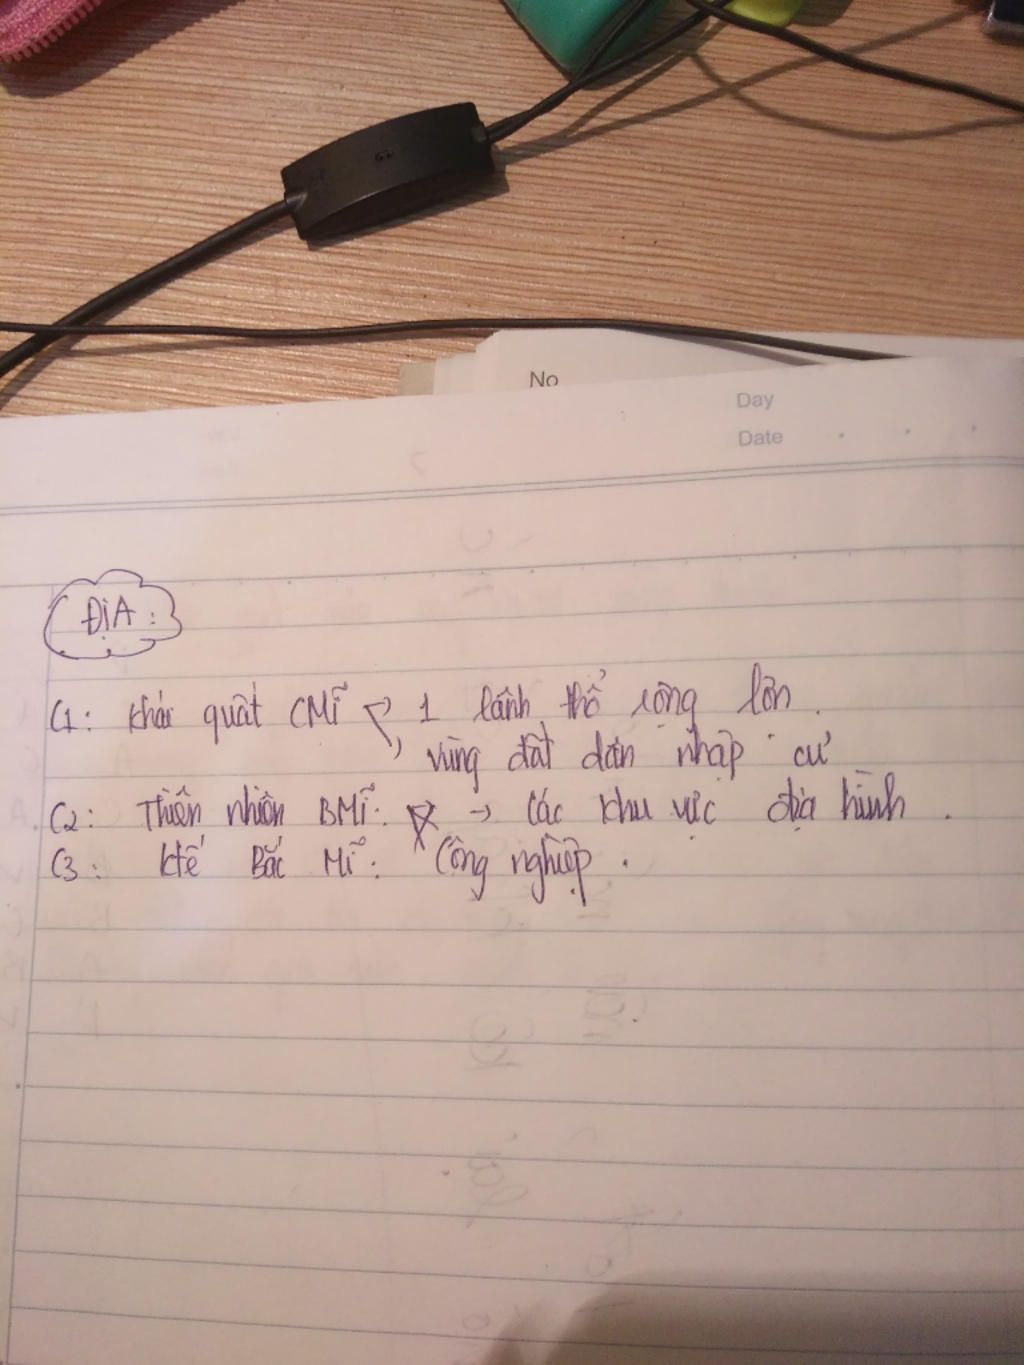 No
Day
Date
ĐỊA:
C1: Khái quát CMĩ 1 lãnh thổ rộng lớn.
vùng đất dân nhập cư
C2: Thiên nhiên BMĩ: → Các khu vực địa hình.
C3: Ktế Bắc Mĩ: Công nghiệp.